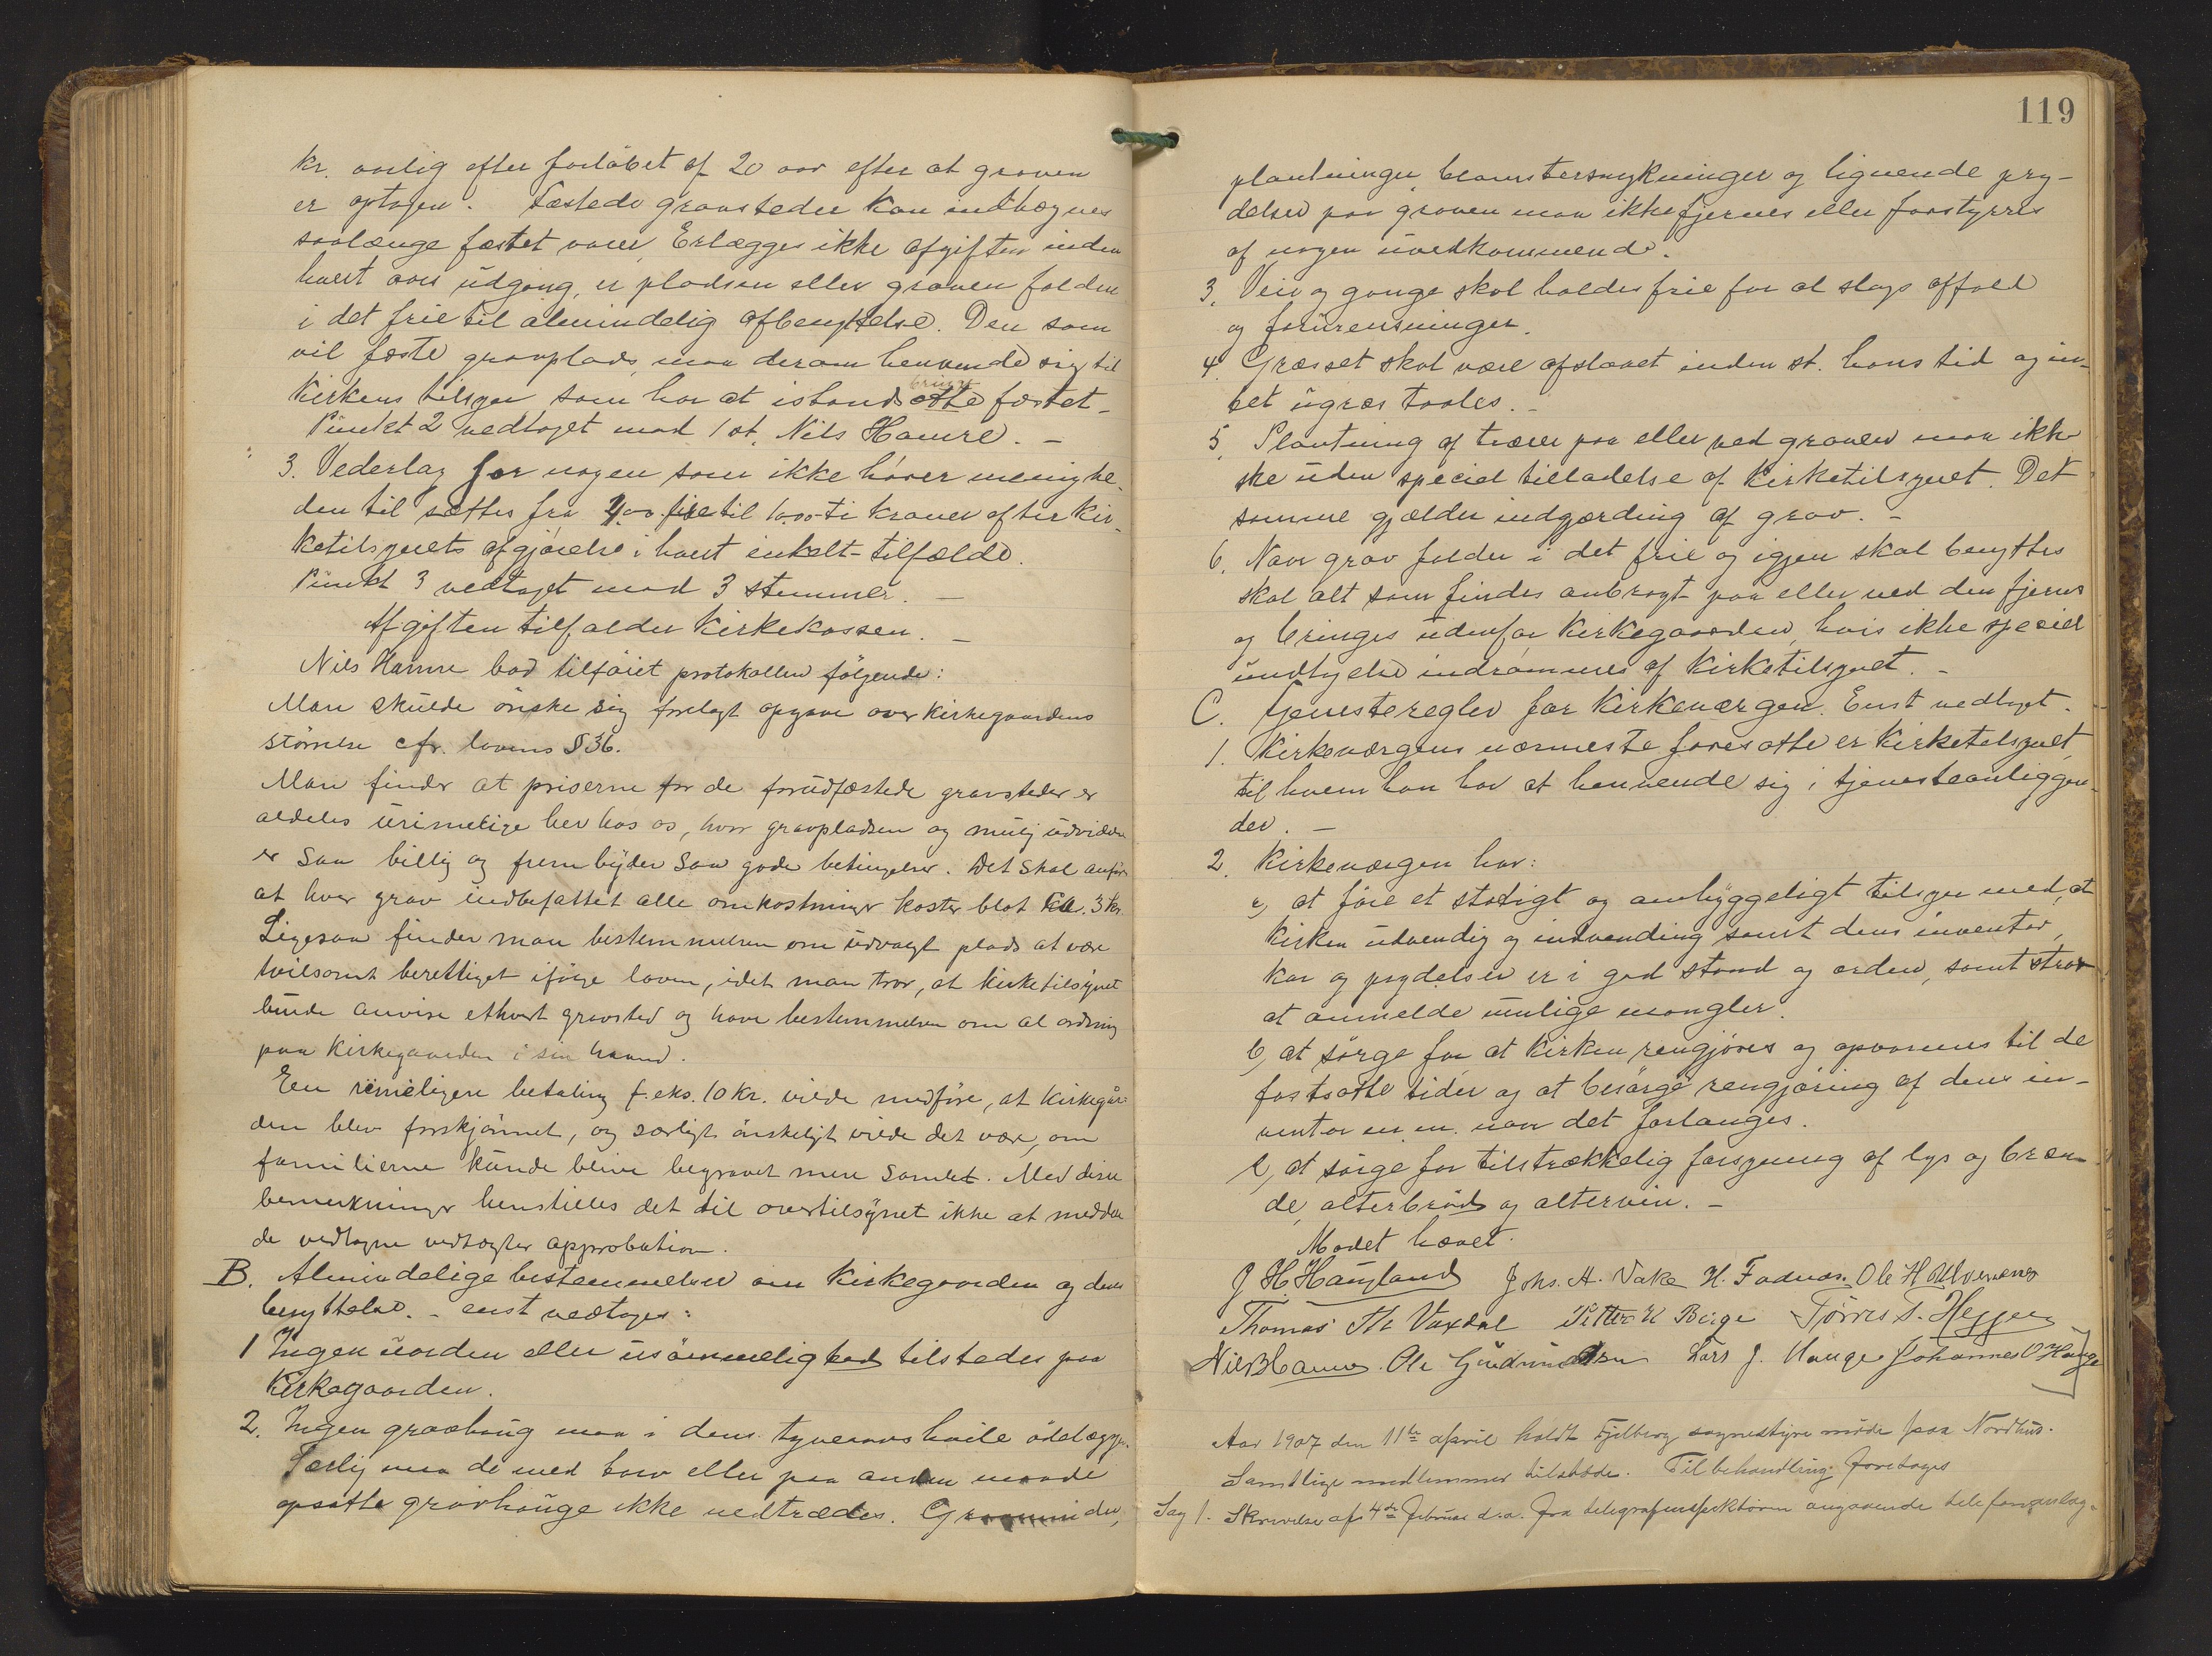 kr. aarlig efter forløbet af 20 aar efter at graven
er optagen. Fæstede gravsteder kan indhegnes
saalænge fæstet varer. Erlægges ikke afgiften inden
hvert aars udgang, er pladsen eller graven falden
i det frie til almindelig afbenyttelse. Den som
vil fæste gravplads, maa derom henvende sig til
kirkens tilsyn som har at istandbringe fæstet.
Punkt 2 vedtaget mod 1 st. Nils Hamre. –
3. Vederlag for nogen som ikke hører menighe-
den til sættes fra 4,00 fire til 10,00 ti kroner efter kir-
ketilsynets afgjørelse i hvert enkelt tilfælde.
Punkt 3 vedtaget mod 3 stemmer. –
Afgiften tilfalder Kirkekassen. –
Nils Hamre bad tilføiet protokollen følgende:
Man skulde ønske sig forelagt opgave over kirkegaardens
størrelse cfr. lovens § 36.
Man finder at priserne for de forudfæstede gravsteder er
aldeles urimelige her hos os, hvor gravpladsen og mulig udvidelse
er saa billig og frembyder saa gode betingelser. Det skal anføres
at hver grav indbefattet alle omkostninger koster blot 3 kr.
Ligesaa finder man bestemmelsen om udvalgt plads at være
tvilsomt berettiget ifølge loven, idet man tror, at kirketilsynet
burde anvise ethvert gravsted og have bestemmelsen om al ordning
paa Kirkegaarden i sin haand.
En rimeligere betaling f. eks. 10 kr. vilde medføre, at kirkegår-
den blev forskjønnet, og særligt ønskeligt vilde det være, om
familierne kunde blive begravet mere samlet. Med disse
bemerkninger henstilles det til overtilsynet ikke at meddele
de vedtagne vedtægter approbation.
B. Almindelige bestemmelser om Kirkegaarden og dens
benyttelse. – enst vedtages:
1 Ingen uorden eller usømmelighed tilstedes paa
Kirkegaarden.
2. Ingen gravhaug maa i dens tyveaars hvile ødelægges.
Særlig maa de med torv eller paa anden maade
opsatte gravhauge ikke nedtrædes. Gravminder,
119
plantninger, blomstersmykninger og lignende pry-
delser paa graven maa ikke fjernes eller forstyrres
af nogen uvedkommende.
3. Veie og gange skal holdes frie for al slags affald
og forurensninger.
4. Græsset skal være afslaaet inden st. hans tid og in-
tet ugræs taales. –
5. Plantning af træer paa eller ved graven maa ikke
ske uden speciel tilladelse af Kirketilsynet. Det
samme gjælder indgjærding af grav. –
6. Naar grav falder i det frie og igjen skal benyttes
skal alt som findes anbragt paa eller ved den fjernes
og bringes udenfor Kirkegaarden, hvis ikke speciel
undtagelse indrømmes af Kirketilsynet. –
C. Tjenesteregler for Kirkeværgen. Enst vedtaget.
1. Kirkeværgens nærmeste foresatte er Kirketilsynet,
til hvem han har at henvende sig i tjenesteanliggen-
der. –
2. Kirkeværgen har:
a, at føre et stadigt og omhyggeligt tilsyn med, at
Kirken udvendig og indvending samt dens inventar,
kar og prydelser er i god stand og orden, samt strax
at anmelde mulige mangler.
b, at sørge for at Kirken rengjøres og opvarmes til de
fastsatte tider og at besørge rengjøring af dens in-
ventar m. m. naar det forlanges.
c, at sørge for tilstrækkelig forsyning af lys og bræn-
de, alterbrød og altervin. –
Mødet hævet.
J H. Haugland Johs. A. Vake H. Fadnæs. Ole H Ulvenæs
Thomas Th Vaxdal Petter K Berge Tørres T. Heggen
Nils Hamre. Ole Gudmundsen Lars J. Hauge Johannes O Hauge
Aar 1907 den 11te april holdt Fjelberg sognestyre møde paa Nordhus.
Samtlige medlemmer tilstede. Til behandling foretages
Sag 1. Skrivelse af 4de februar d. a. fra telegrafinspektøren angaaende telefonanlæg-